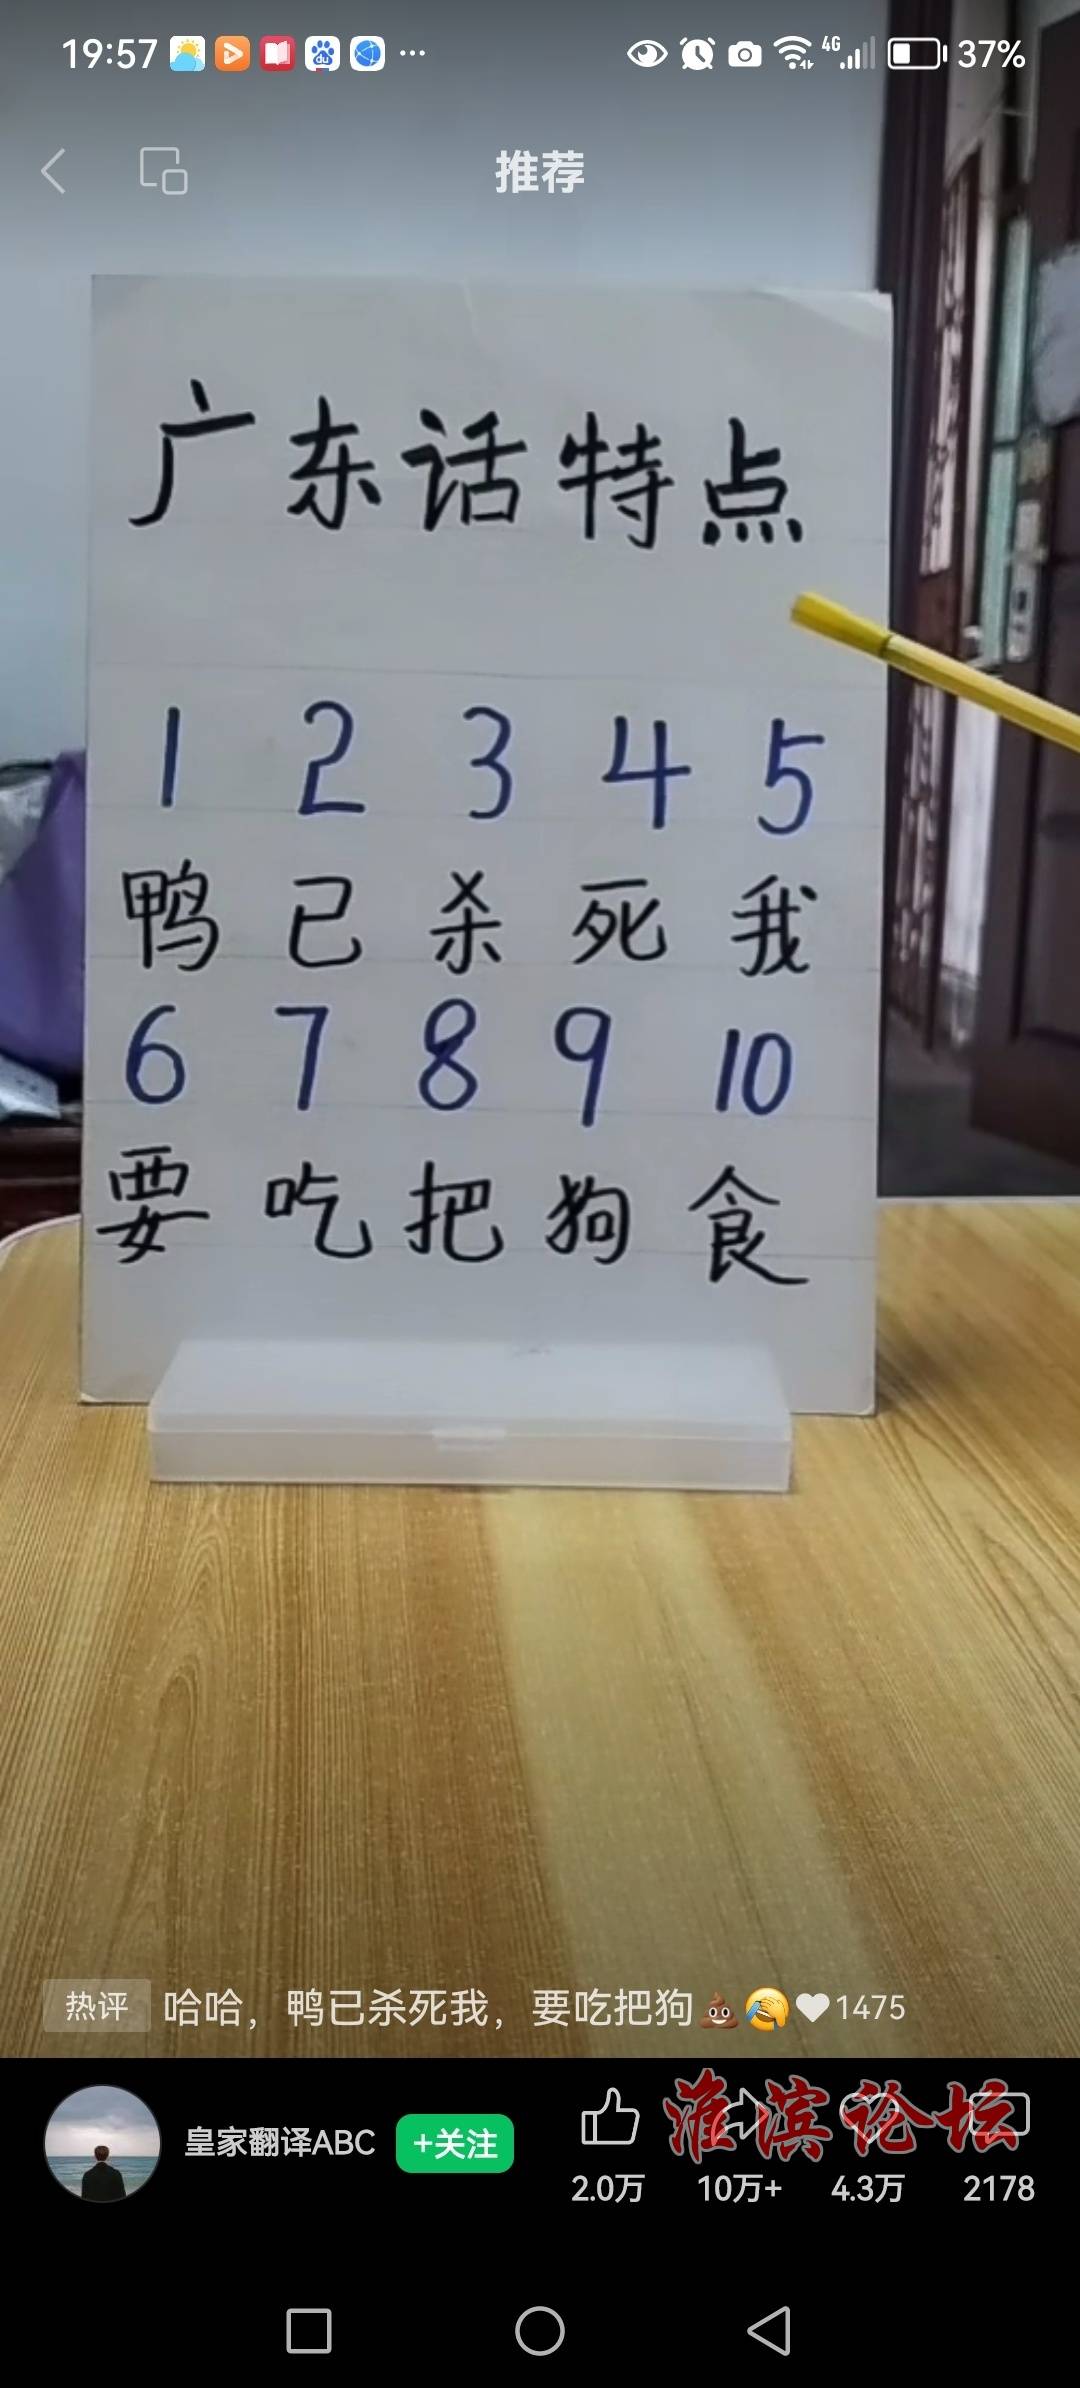 19:57
4G
37%
推荐
广东话特点
1 2 3 4 5
鸭 已 杀 死 我
6 7 8 9 10
要 吃 把 狗 食
热评 哈哈，鸭已杀死我，要吃把狗💩🤣 1475
皇家翻译ABC +关注
淮滨论坛
2.0万 10万+ 4.3万 2178